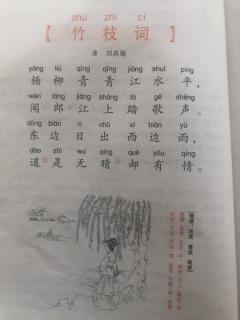 zhú zhī cí
【竹枝词】
唐 刘禹锡
yáng liǔ qīng qīng jiāng shuǐ píng
杨柳青青江水平，
wén láng jiāng shàng tà gē shēng
闻郎江上踏歌声。
dōng biān rì chū xī biān yǔ
东边日出西边雨，
dào shì wú qíng què yǒu qíng
道是无晴却有情。